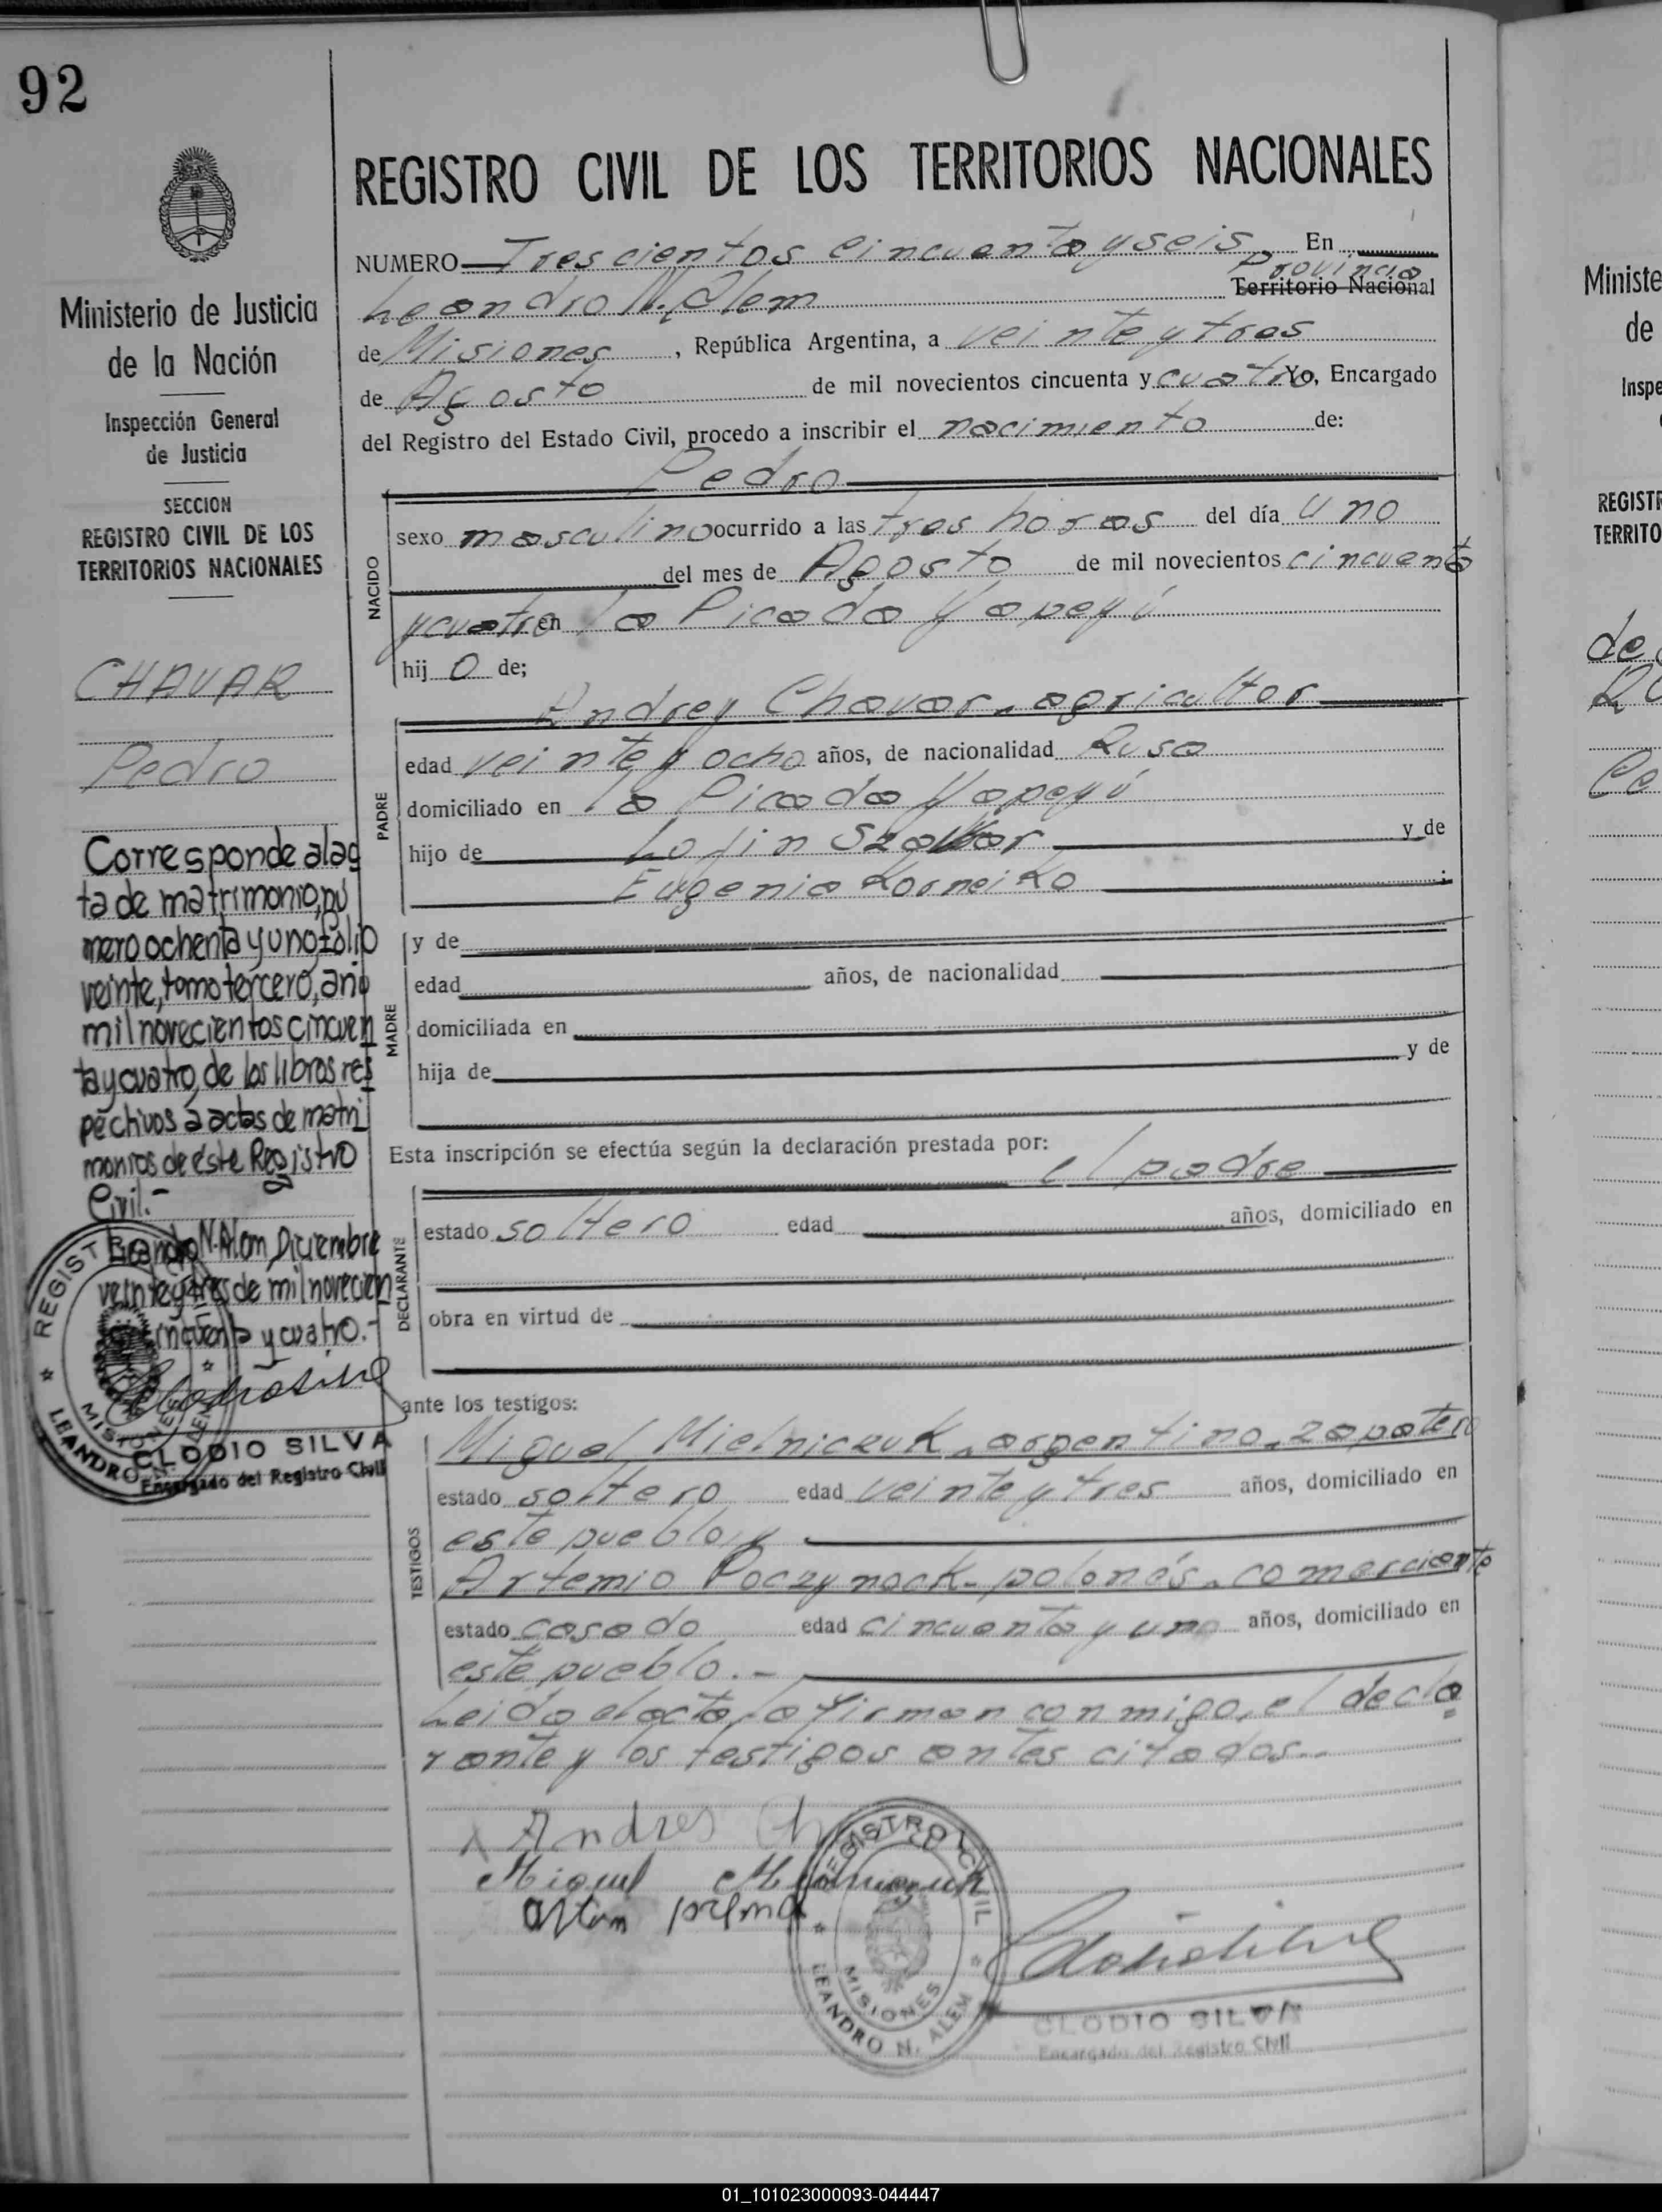 92
REGISTRO CIVIL DE LOS TERRITORIOS NACIONALES
NUMERO Trescientos cincuenta y seis. En
Provincia
Leandro N. Alem Territorio Nacional
de Misiones, República Argentina, a veinte y tres
de Agosto de mil novecientos cincuenta y cuatro Yo, Encargado
del Registro del Estado Civil, procedo a inscribir el nacimiento de:
Pedro
NACIDO
sexo masculino ocurrido a las tres horas del día uno
del mes de Agosto de mil novecientos cincuenta
y cuatro en la Picada Yapeyú
hij o de;
PADRE
Andrey Chavar. agricultor
edad veinte y ocho años, de nacionalidad Rusa
domiciliado en la Picada Yapeyú
hijo de y de
Eugenia Korneiko ;
MADRE
y de
edad años, de nacionalidad
domiciliada en
hija de y de
Esta inscripción se efectúa según la declaración prestada por:
el padre
DECLARANTE
estado soltero edad años, domiciliado en
obra en virtud de
ante los testigos:
TESTIGOS
Miguel Mielniczuk. argentino. zapatero
estado soltero edad veinte y tres años, domiciliado en
este pueblo, y
Artemio Poczynack- polonés. comerciante
estado casado edad cincuenta y uno años, domiciliado en
este pueblo.-
Leida el acta, la firman conmigo, el decla
rante y los testigos antes citados.-
Andres Ch
Miguel
REGISTRO CIVIL
MISIONES
LEANDRO N. ALEM
CLODIO SILVA
Encargado del Registro Civil
Ministerio de Justicia
de la Nación
Inspección General
de Justicia
SECCION
REGISTRO CIVIL DE LOS
TERRITORIOS NACIONALES
CHAVAR
Pedro
Corresponde al ac
ta de matrimonio, nú
mero ochenta y uno, Folio
veinte, tomo tercero, año
mil novecientos cincuen
ta y cuatro, de los libros res
pechivos a actas de matri
monios de éste Registro
Civil.-
Leandro N. Alem, Diciembre
veinte y tres de mil novecien
cincuenta y cuatro.-
REGISTRO
MISIONES
LEANDRO N. ALEM
CLODIO SILVA
Encargado del Registro Civil
Ministe
de
Inspe
REGISTR
TERRITO
de
Ce
01_101023000093-044447